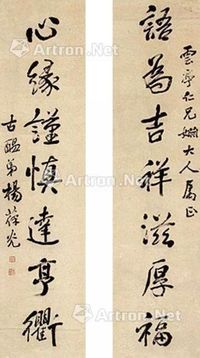 雲亭仁兄姻大人属正
語為吉祥滋厚福
心緣謹慎達亨衢
古醞弟楊葆光
Artron.Net
Artron.Net